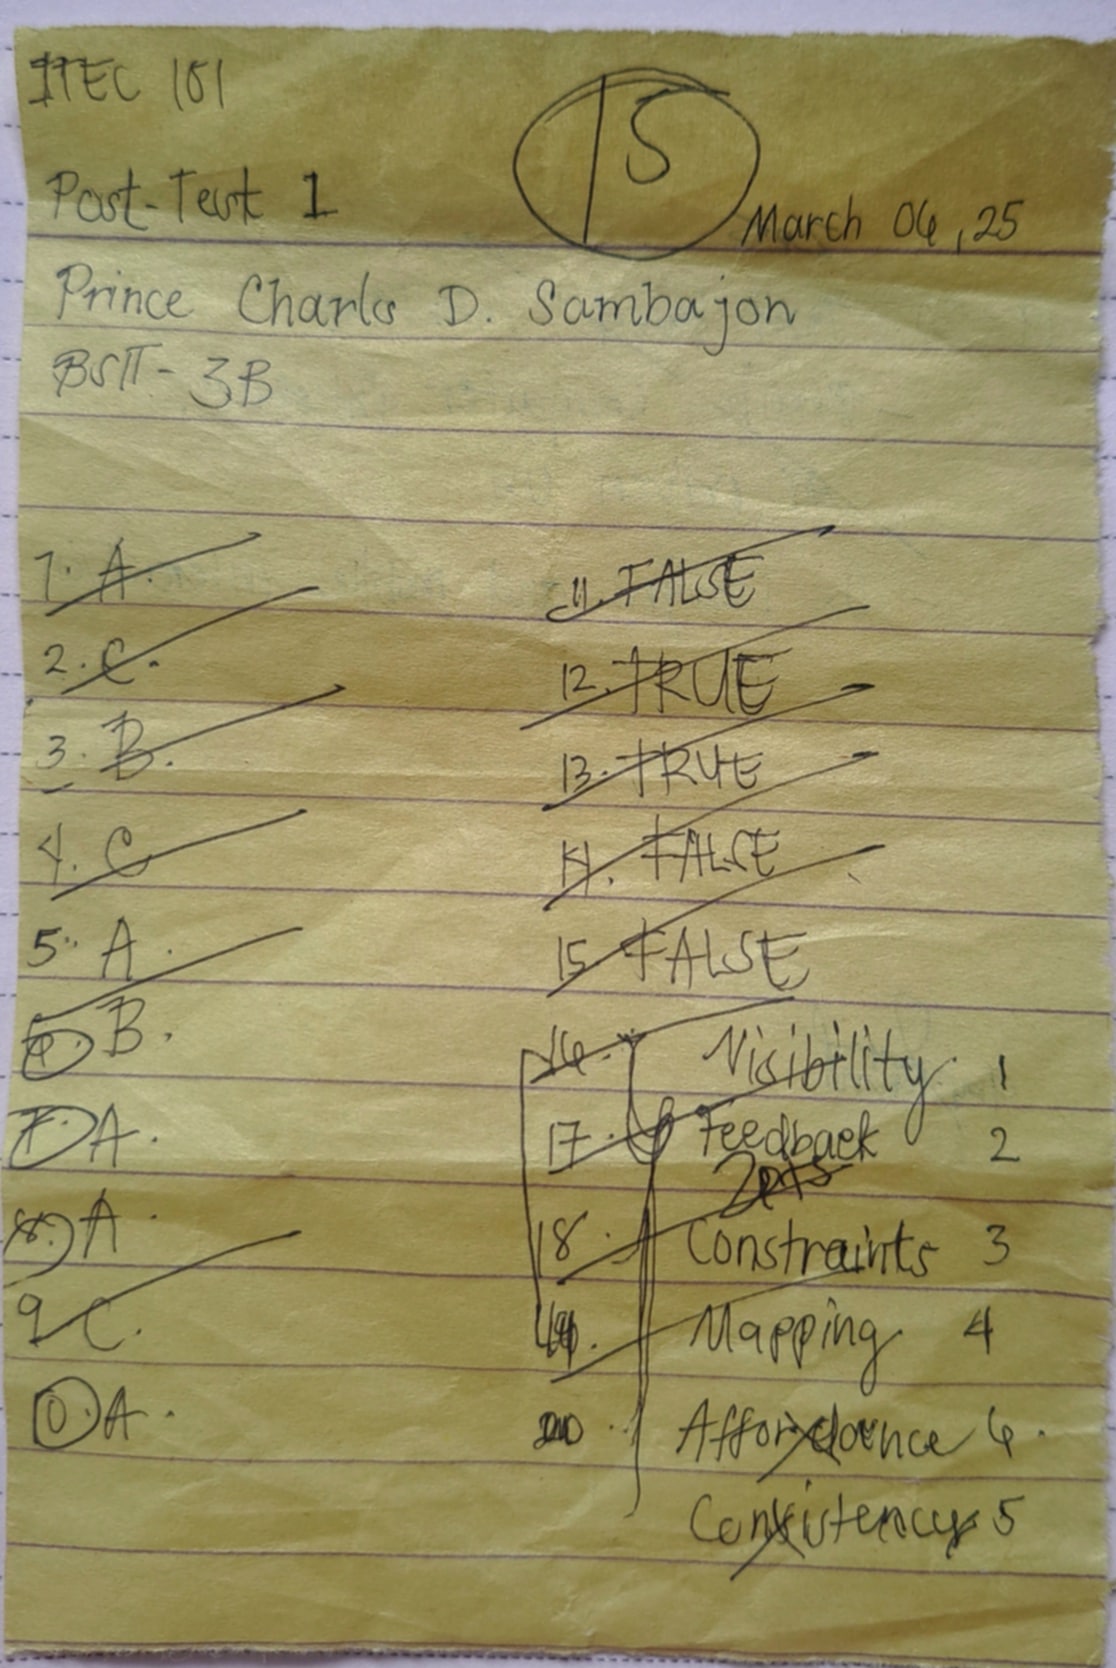 ITEC 101
15
Post-Test 1
March 06, 25
Prince Charles D. Sambajon
BSIT - 3B
1. A.
2. C.
3. B.
4. C
5. A.
6. B.
7. A.
8. A.
9. C.
10. A.
11. FALSE
12. TRUE
13. TRUE
14. FALSE
15. FALSE
16. Visibility 1
17. Feedback 2
2pts
18. Constraints 3
19. Mapping 4
20. Affordance 6.
Consistency 5